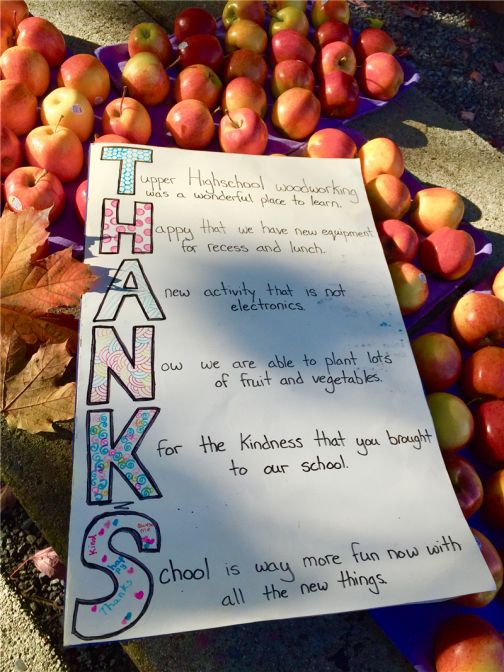 Tupper Highschool woodworking
was a wonderful place to learn.
Happy that we have new equipment
for recess and lunch.
A new activity that is not
electronics.
Now we are able to plant lots
of fruit and vegetables.
K for the Kindness that you brought
to our school.
School is way more fun now with
all the new things.
Kind
Thanks